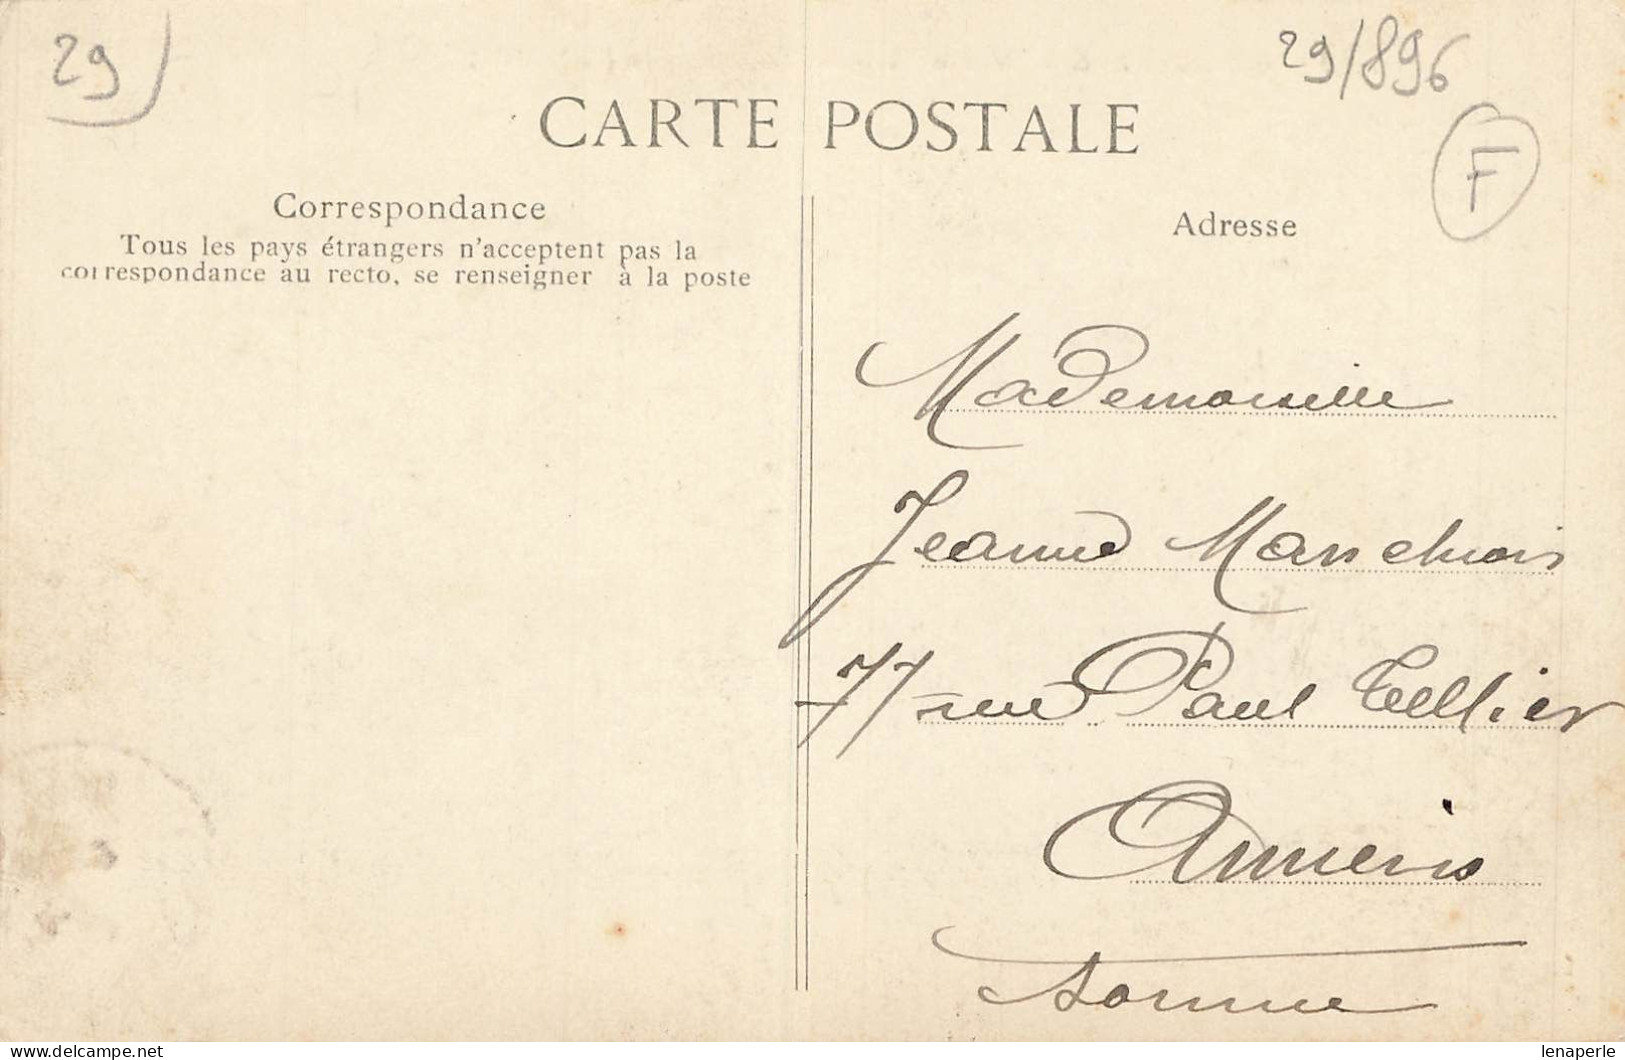 29
29/896
F
CARTE POSTALE
Correspondance
Tous les pays étrangers n'acceptent pas la
correspondance au recto, se renseigner à la poste
Adresse
Mademoiselle
Jeanne
77 rue Paul Tellier
Amiens
Somme
lenaperle